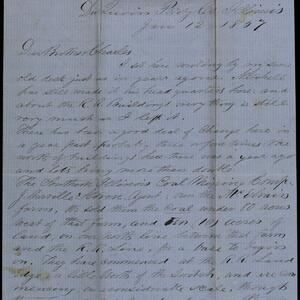 DuQuoin Perry Co Illinois
Jan 12 1857
Dear Brother Charles
I sit here writing by my same
old desk just as in years agone.
has still made it his head quarters here and
about the R.R. buildings every thing is still
very much as I left it.
There has been a good deal of change here in
a year past probably three or four times the
worth of buildings here than was a year ago
and lots bring more than double.
The Southern Illinois Coal Mining Company
farm, He sold them the Coal under 70 acres
west of that farm, and ten 10 acres
land on our north line between that farm
and the R.R. Land, for a base to begin
on. They have commenced at the R.R. Land
a little North of the Switch, and are com-
mencing on considerable scale, though